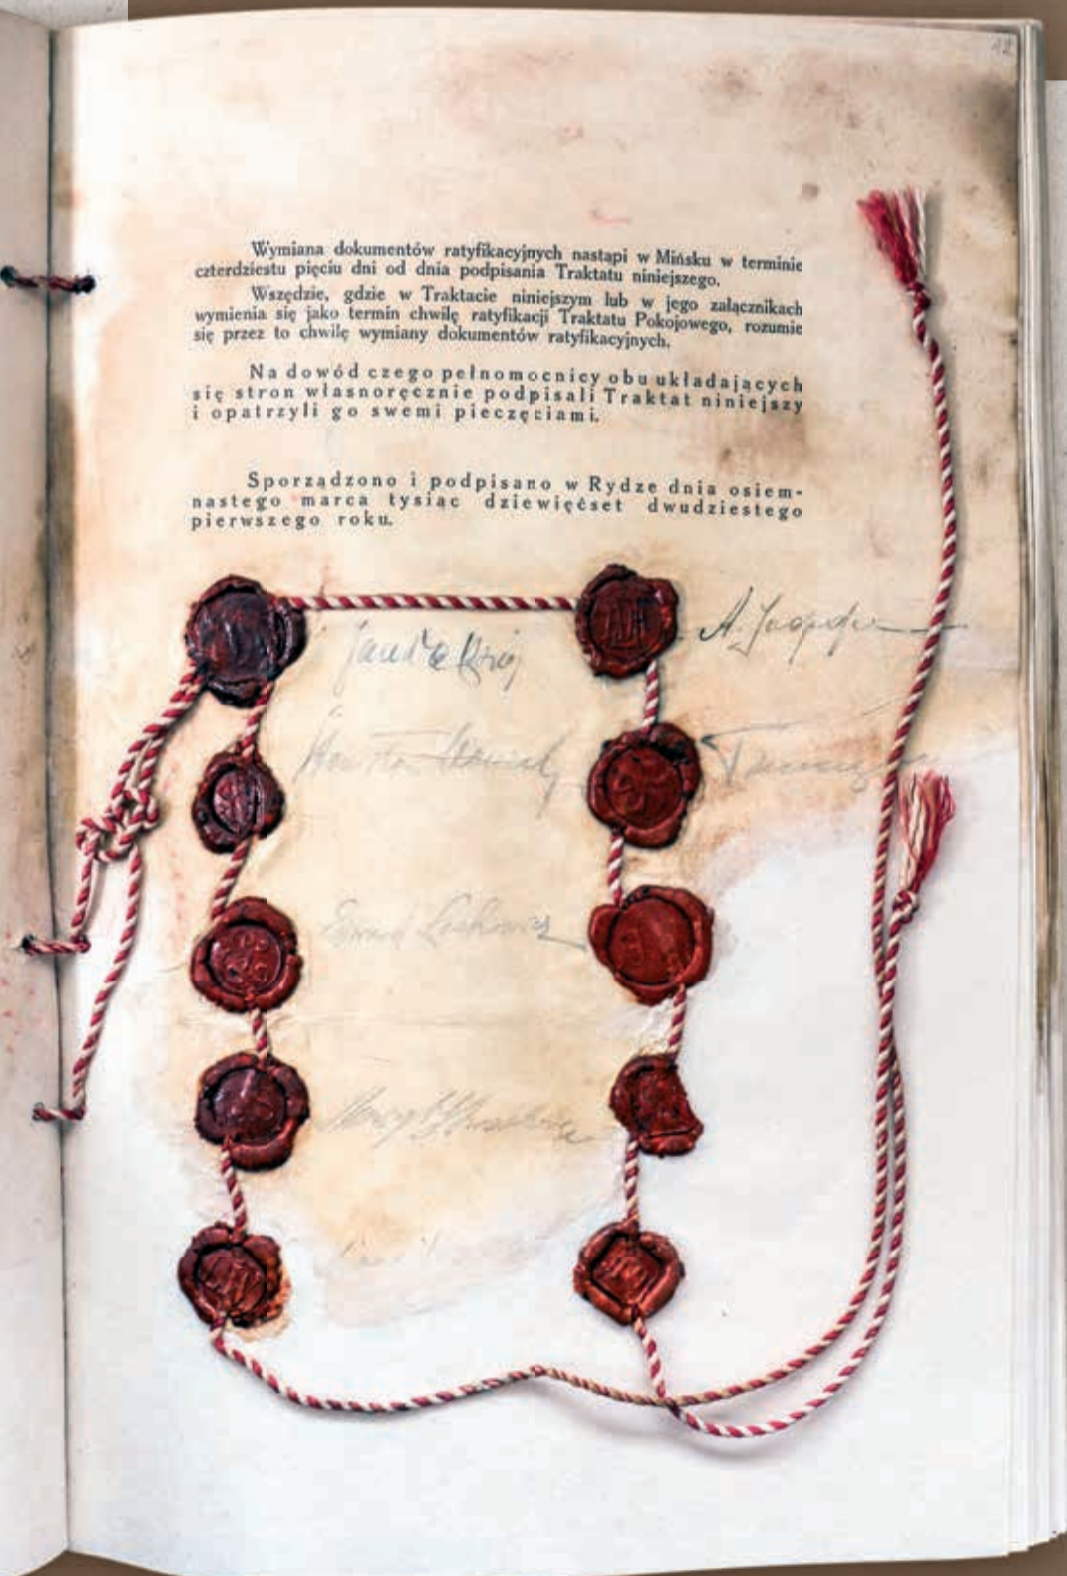 12
Wymiana dokumentów ratyfikacyjnych nastąpi w Mińsku w terminie
czterdziestu pięciu dni od dnia podpisania Traktatu niniejszego.
Wszędzie, gdzie w Traktacie niniejszym lub w jego załącznikach
wymienia się jako termin chwilę ratyfikacji Traktatu Pokojowego, rozumie
się przez to chwilę wymiany dokumentów ratyfikacyjnych.
Na dowód czego pełnomocnicy obu układających
się stron własnoręcznie podpisali Traktat niniejszy
i opatrzyli go swemi pieczęciami.
Sporządzono i podpisano w Rydze dnia osiem-
nastego marca tysiąc dziewięćset dwudziestego
pierwszego roku.
Jan Dąbski
A.
Edward Lechowicz